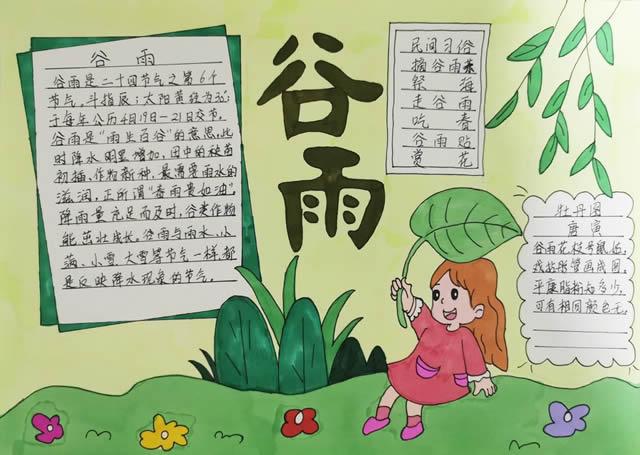 谷 雨
谷雨是二十四节气之第6个
节气。斗指辰;太阳黄经为30°;
于每年公历4月19日-21日交节。
谷雨是“雨生百谷”的意思,此
时降水明显增加,田中的秧苗
初插、作物新种,最需要雨水的
滋润,正所谓“春雨贵如油”。
降雨量充足而及时,谷类作物
能茁壮成长。谷雨与雨水、小
满、小雪、大雪等节气一样,都
是反映降水现象的节气。
谷
雨
民间习俗
摘谷雨茶
祭 海
走谷雨
吃 春
谷雨贴
赏 花
牡丹图
唐 寅
谷雨花枝号鼠姑,
戏拈彤管画成图。
平康脂粉知多少,
可有相同颜色无。